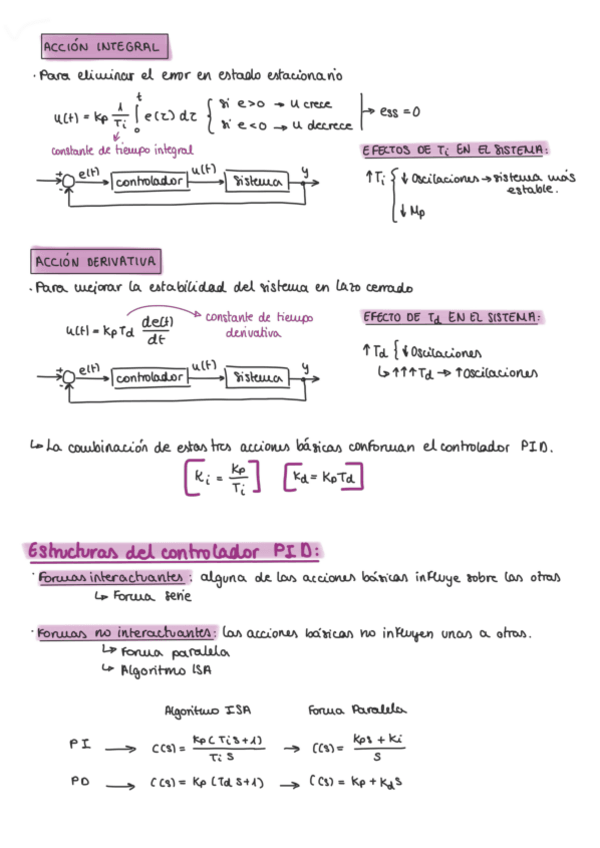 ACCIÓN INTEGRAL
· Para eliminar el error en estado estacionario
u(t) = Kp 1/Ti ∫₀ᵗ e(τ) dτ { si e>0 → u crece
si e<0 → u decrece | → ess = 0
constante de tiempo integral
EFECTOS DE Ti EN EL SISTEMA:
↑Ti { ↓ Oscilaciones → sistema más
estable.
↓ Mp
e(t) controlador u(t) sistema y
ACCIÓN DERIVATIVA
· Para mejorar la estabilidad del sistema en lazo cerrado
u(t) = Kp Td de(t)/dt → constante de tiempo
derivativa
EFECTO DE Td EN EL SISTEMA:
↑Td { ↓ Oscilaciones
↳ ↑↑↑Td → ↑Oscilaciones
e(t) controlador u(t) sistema y
↳ La combinación de estas tres acciones básicas conforman el controlador PID.
[Ki = Kp/Ti] [Kd = KpTd]
Estructuras del controlador PID:
· Formas interactuantes: alguna de las acciones básicas influye sobre las otras
↳ Forma serie
· Formas no interactuantes: las acciones básicas no influyen unas a otras.
↳ Forma paralela
↳ Algoritmo ISA
Algoritmo ISA Forma Paralela
PI → C(s) = Kp(Tis+1)/Tis → C(s) = Kps + Ki/s
PD → C(s) = Kp(Tds+1) → C(s) = Kp + Kds